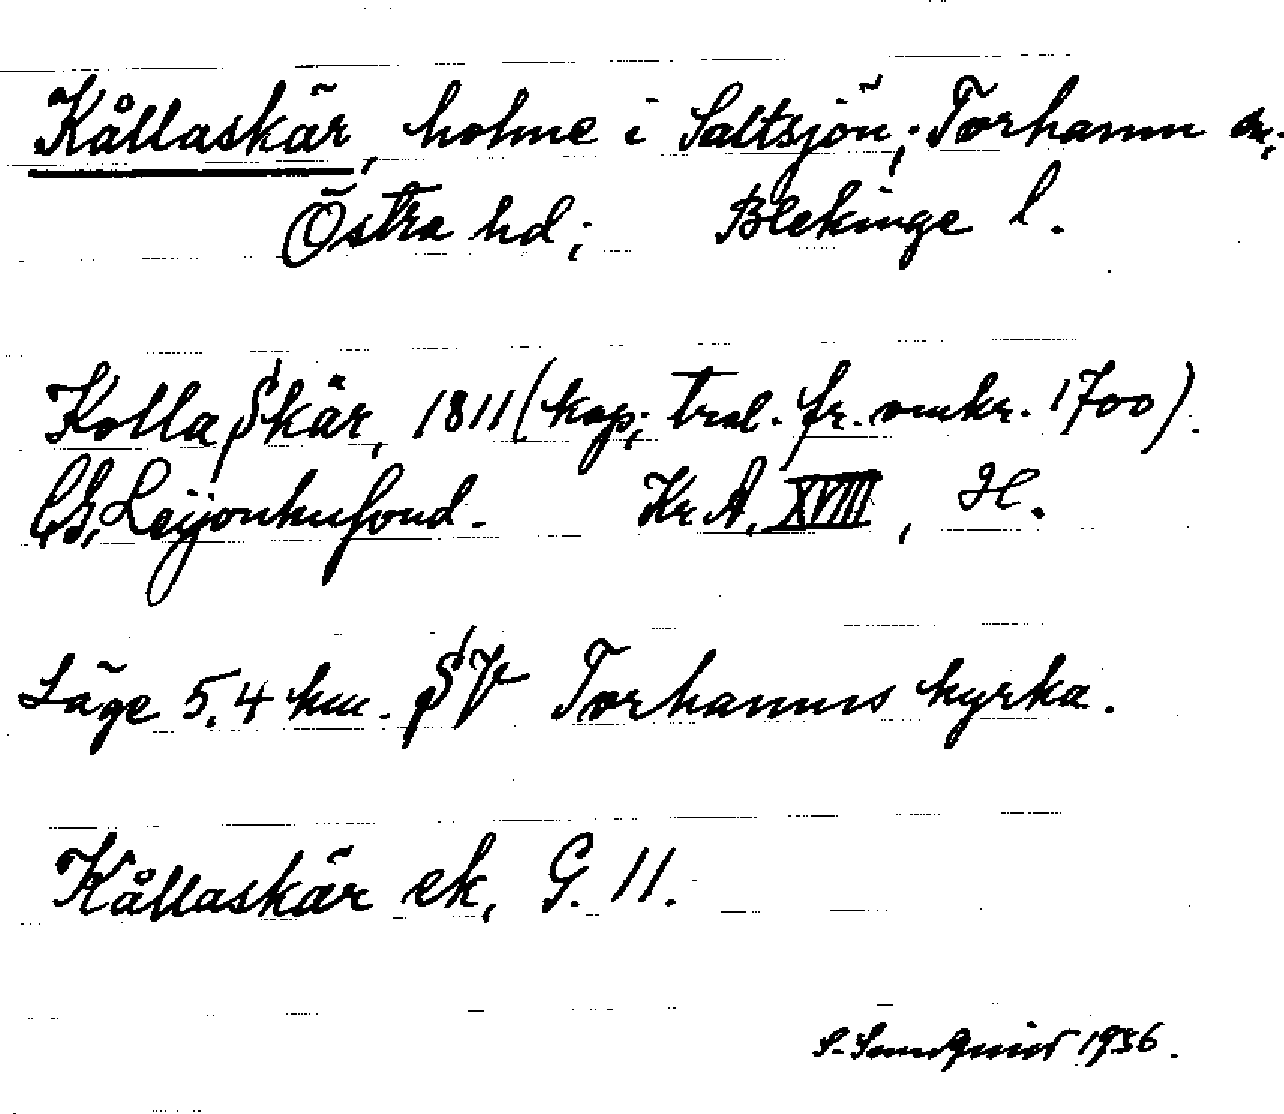 Kållaskär, holme i Saltsjön; Torhamn sn;
Östra hd; Blekinge l.
Kolla Skär, 1811 (kop; tral. fr. omkr. 1700).
CG, Leijonhufvud. Kr A, XVIII, H.
Läge 5,4 km. SV Torhamns kyrka.
Kållaskär ek, G. 11.
S. 1936.